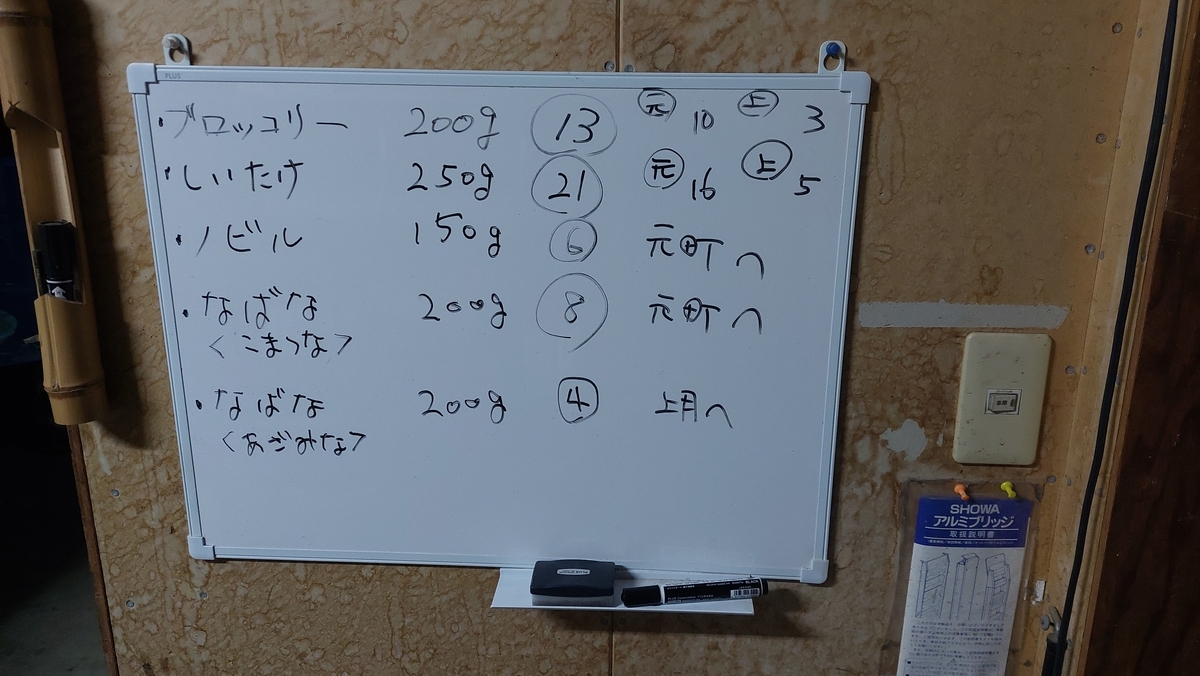 PLUS
・ブロッコリー 200g 13 元 10 上 3
・しいたけ 250g 21 元 16 上 5
・ノビル 150g 6 元町へ
・なばな 200g 8 元町へ
<こまつな>
・なばな 200g 4 上月へ
<あざみな>
SHOWA
アルミブリッジ
取扱説明書